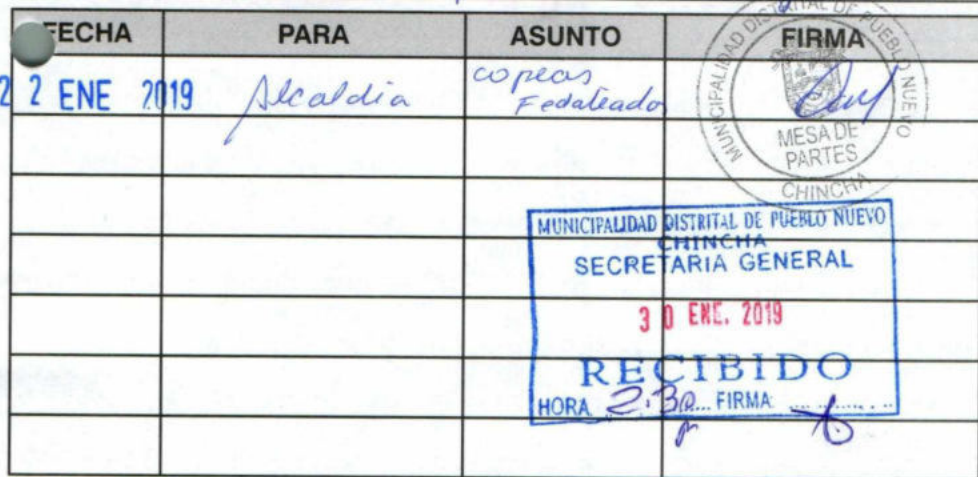 FECHA PARA ASUNTO FIRMA
22 ENE 2019 Alcaldia copeas
Fedateado
MUNICIPALIDAD DISTRITAL DE PUEBLO NUEVO
MESA DE
PARTES
CHINCHA
MUNICIPALIDAD DISTRITAL DE PUEBLO NUEVO
CHINCHA
SECRETARIA GENERAL
30 ENE. 2019
RECIBIDO
HORA 2:30 FIRMA